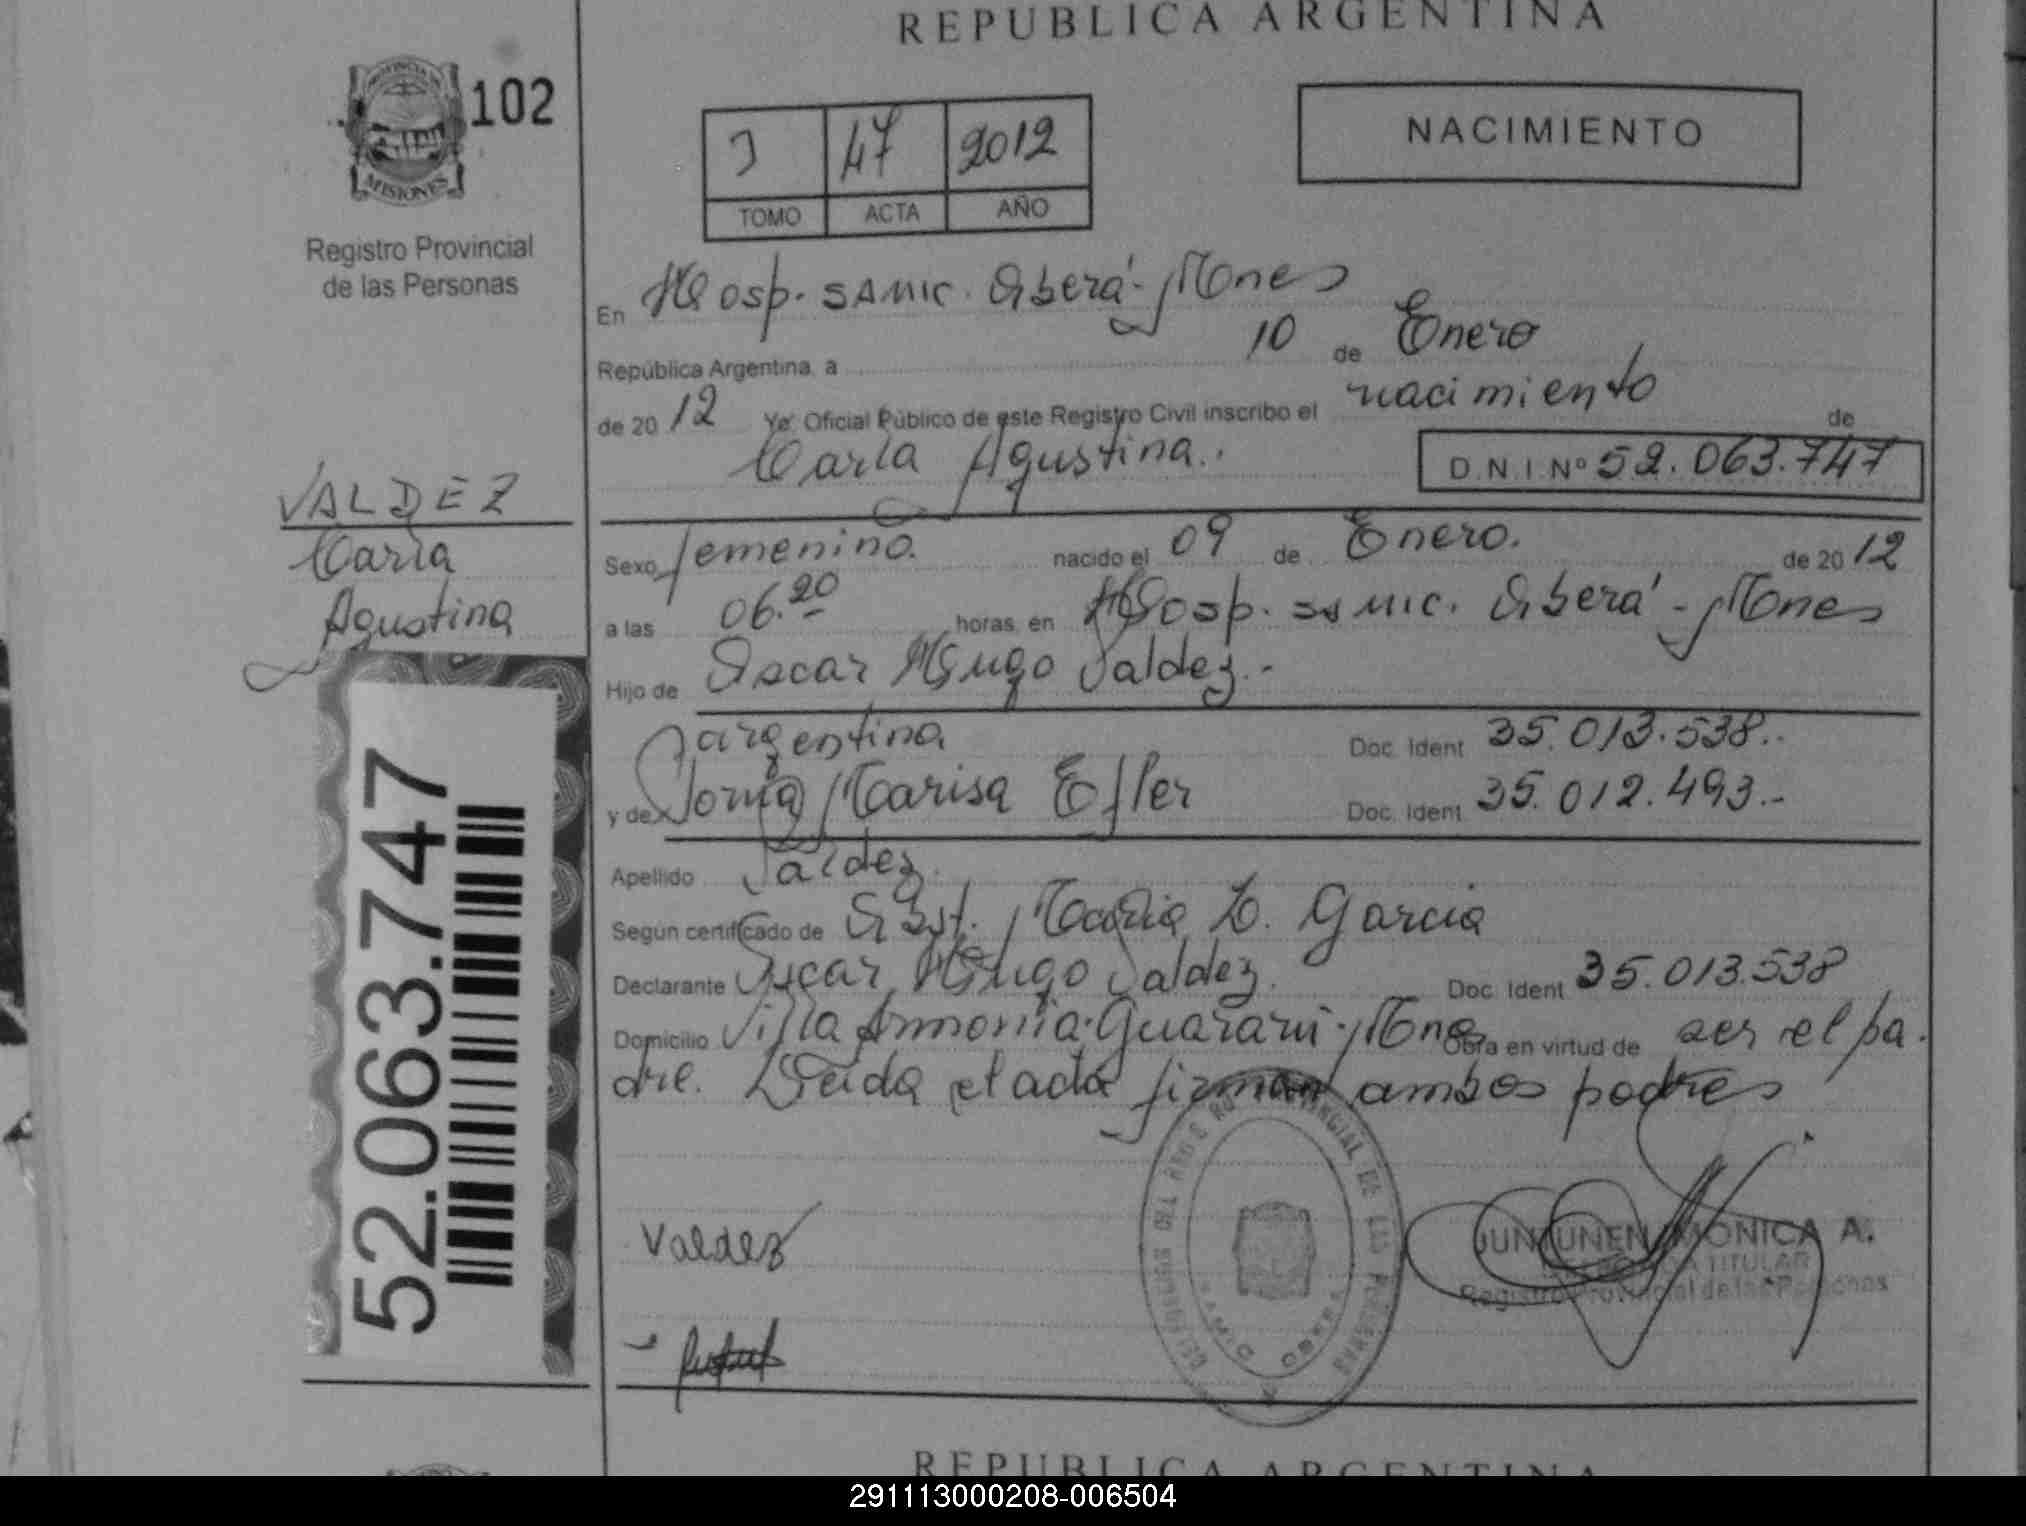 REPUBLICA ARGENTINA
PROVINCIA DE
MISIONES
102
Registro Provincial
de las Personas
J 47 2012
TOMO ACTA AÑO
NACIMIENTO
En Hosp. SAMIC. Oberá - Mnes
República Argentina, a 10 de Enero
de 2012 Yo: Oficial Público de este Registro Civil inscribo el nacimiento de
Carla Agustina.
D.N.I. Nº 52.063.747
VALDEZ
Carla
Agustina
52.063.747
Sexo femenino. nacido el 09 de Enero. de 2012
a las 06.20 horas, en Hosp. SAMIC. Oberá - Mnes
Hijo de Oscar Hugo Valdez.-
argentina Doc. Ident 35.013.538.-
y de Marisa Efler Doc. Ident 35.012.493.-
Apellido Valdez.
Según certificado de Obst. María L. Garcia
Declarante Oscar Hugo Valdez. Doc. Ident 35.013.538
Domicilio Villa Armonia. Guaraní - Mnes Obra en virtud de ser el pa.
dre. Leida el acta firman ambos padres
Valdez
PROVINCIAL DE LAS PERSONAS
SAMIC OBERA
MONICA A.
TITULAR
Registro Provincial de las Personas
REPUBLICA ARGENTINA
291113000208-006504